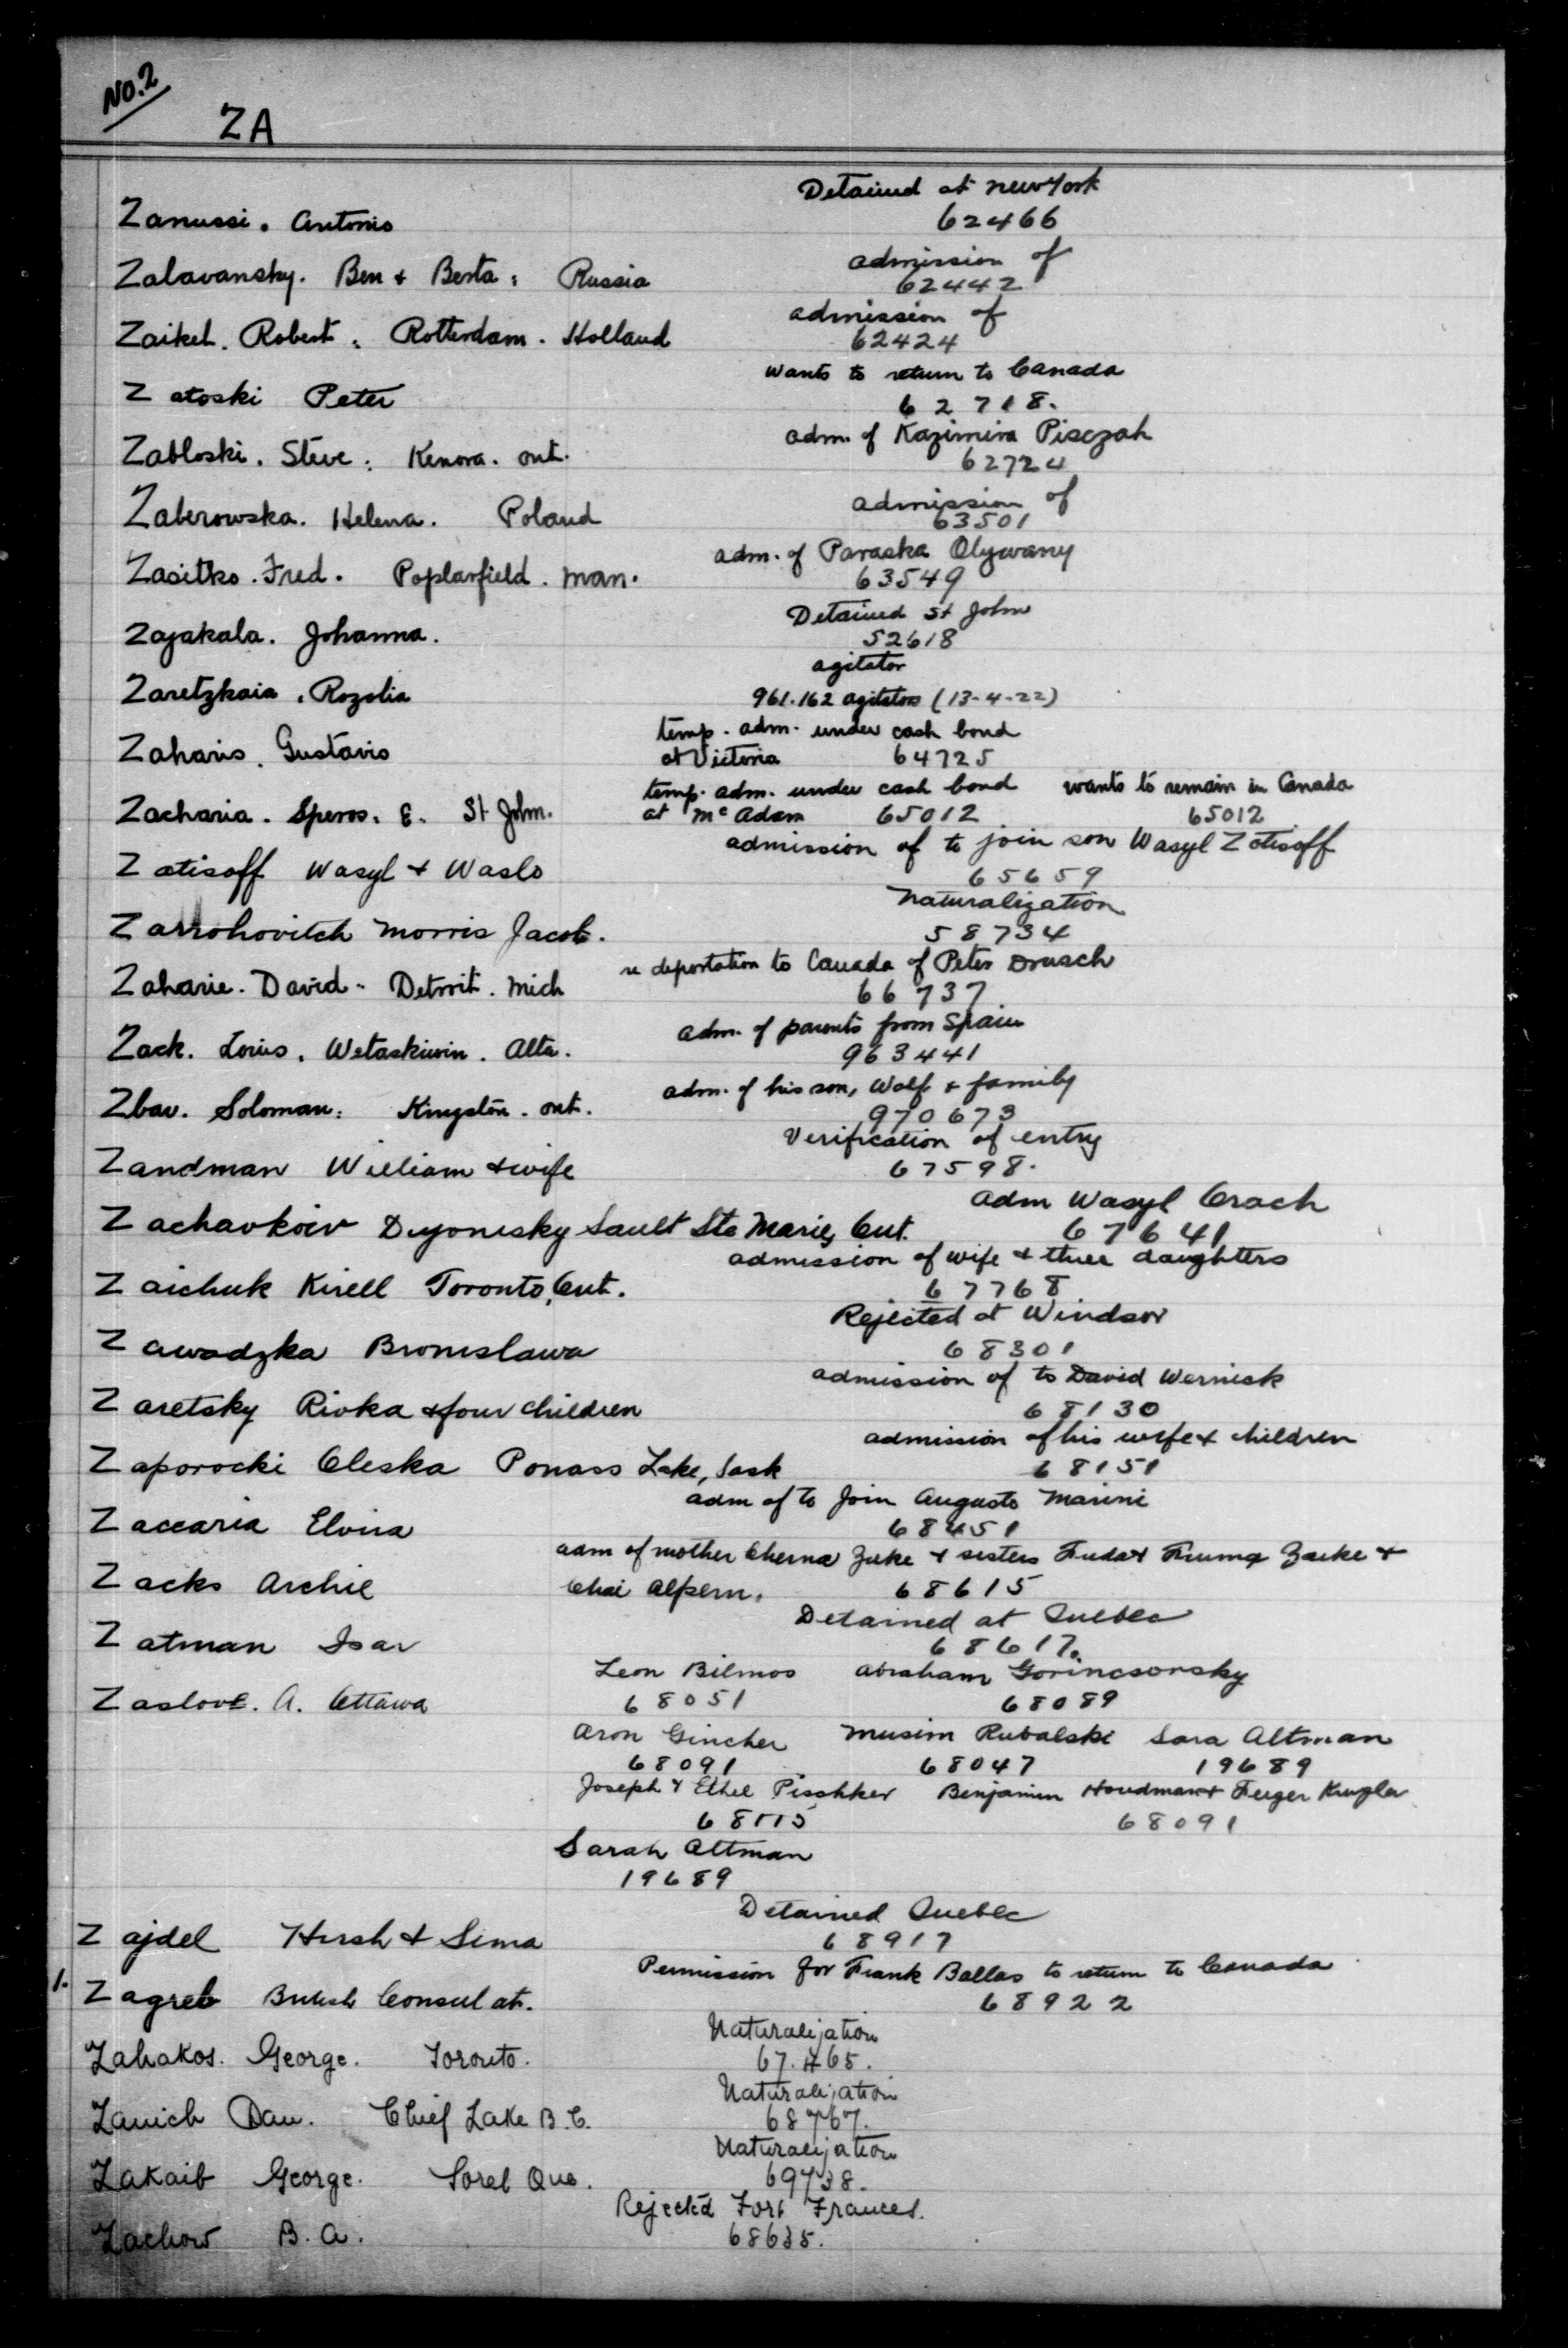 No. 2
ZA
Detained at New York
Zanussi. Antonio 62466
admission of
Zalavansky. Ben & Berta: Russia 62442
admission of
Zaikel. Robert: Rotterdam. Holland 62424
wants to return to Canada
Zatoski Peter 62718.
adm. of Kazimira Pisczah
Zabloski. Steve: Kenora. Ont. 62724
admission of
Zaberowska. Helena. Poland 63501
adm. of Paraska Olywany
Zasitko. Fred. Poplarfield. Man. 63549
Detained St John
Zajakala. Johanna. 52618
agitator
Zaretzkaia. Rozolia 961.162 agitators (13-4-22)
temp. adm. under cash bond
Zaharis. Gustavis at Victoria 64725
temp. adm. under cash bond wants to remain in Canada
Zacharia. Speros. E. St. John. at McAdam 65012 65012
admission of to join son Wasyl Zatisoff
Zatisoff Wasyl & Waslo 65659
Naturalization
Zarrohovitch Morris Jacob. 58734
re deportation to Canada of Peter Drusch
Zaharie. David. Detroit. Mich 66737
adm. of parents from Spain
Zack. Louis. Wetaskiwin. Alta. 963441
adm. of his son, Wolf & family
Zbar. Soloman: Kingston. Ont. 970673
Verification of entry
Zandman William & wife 67598.
adm Wasyl Crach
Zachavkoiv Dyonisky Sault Ste Marie, Ont. 67641
admission of wife & three daughters
Zaichuk Kirell Toronto, Ont. 67768
Rejected at Windsor
Zawadzka Bronislawa 68301
admission of to David Wernick
Zaretsky Rivka & four children 68130
admission of his wife & children
Zaporocki Oleska Ponass Lake, Sask 68151
adm of to join Augusto Marini
Zaccaria Elvira 68451
adm of mother Cherna Zuke & sisters Fuda & Fruma Zaike &
Zacks Archie Chai Alpern. 68615
Detained at Quebec
Zatman Isar 68617.
Leon Bilmos Abraham Gorincsorsky
Zaslove. A. Ottawa 68051 68089
Aron Gincher Musim Rubalski Sara Altman
68091 68047 19689
Joseph & Ethel Pisshker Benjamin Houdman & Feiger Kruglar
68115 68091
Sarah Altman
19689
Detained Quebec
Zajdel Hersh & Sima 68917
Permission for Frank Ballas to return to Canada
1. Zagreb British Consulate. 68922
Naturalization
Zahakos. George. Toronto. 67.465.
Naturalization
Zanich Dan. Chief Lake B.C. 68767.
Naturalization
Zakaib George. Sorel Que. 69738.
Rejected Fort Frances.
Zachow B.A. 68635.